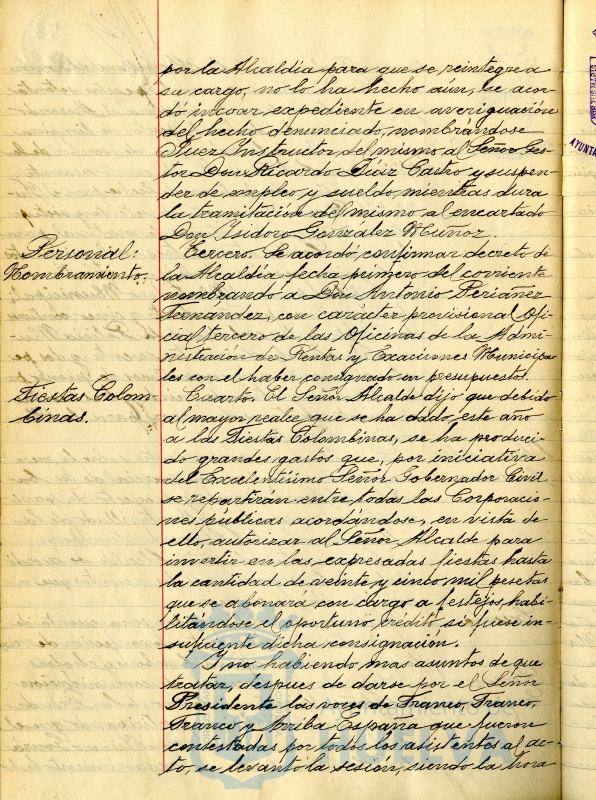 por la Alcaldía para que se reintegre a
su cargo, no lo ha hecho aún, se acor-
dó incoar expediente en averiguación
del hecho denunciado, nombrándose
Juez Instructor del mismo al Señor Ges-
tor Don Ricardo Ruiz Castro y suspen-
der de empleo y sueldo mientras dura
la tramitación del mismo al encartado
Don Isidoro Gonzalez Muñoz.
Personal:
Nombramiento.
Tercero. Se acordó confirmar decreto de
la Alcaldía fecha primero del corriente
nombrando a Don Antonio Periáñez
Fernandez, con carácter provisional Ofi-
cial tercero de las Oficinas de la Admi-
nistración de Rentas y Exacciones Municipa-
les con el haber consignado en presupuestos.
Fiestas Colom-
binas.
Cuarto. El Señor Alcalde dijo que debido
al mayor realce que se ha dado este año
a las Fiestas Colombinas, se ha produci-
do grandes gastos que, por iniciativa
del Excelentísimo Señor Gobernador Civil
se repartirán entre todas las Corporacio-
nes públicas acordándose, en vista de
ello, autorizar al Señor Alcalde para
invertir en las expresadas fiestas hasta
la cantidad de veinte y cinco mil pesetas
que se abonará con cargo a festejos, habi-
litándose el oportuno crédito si fuese in-
suficiente dicha consignación.
Y no habiendo mas asuntos de que
tratar, despues de darse por el Señor
Presidente las voces de Franco, Franco,
Franco y Arriba España que fueron
contestadas por todos los asistentes al ac-
to, se levantó la sesión, siendo la hora
AYUNTA